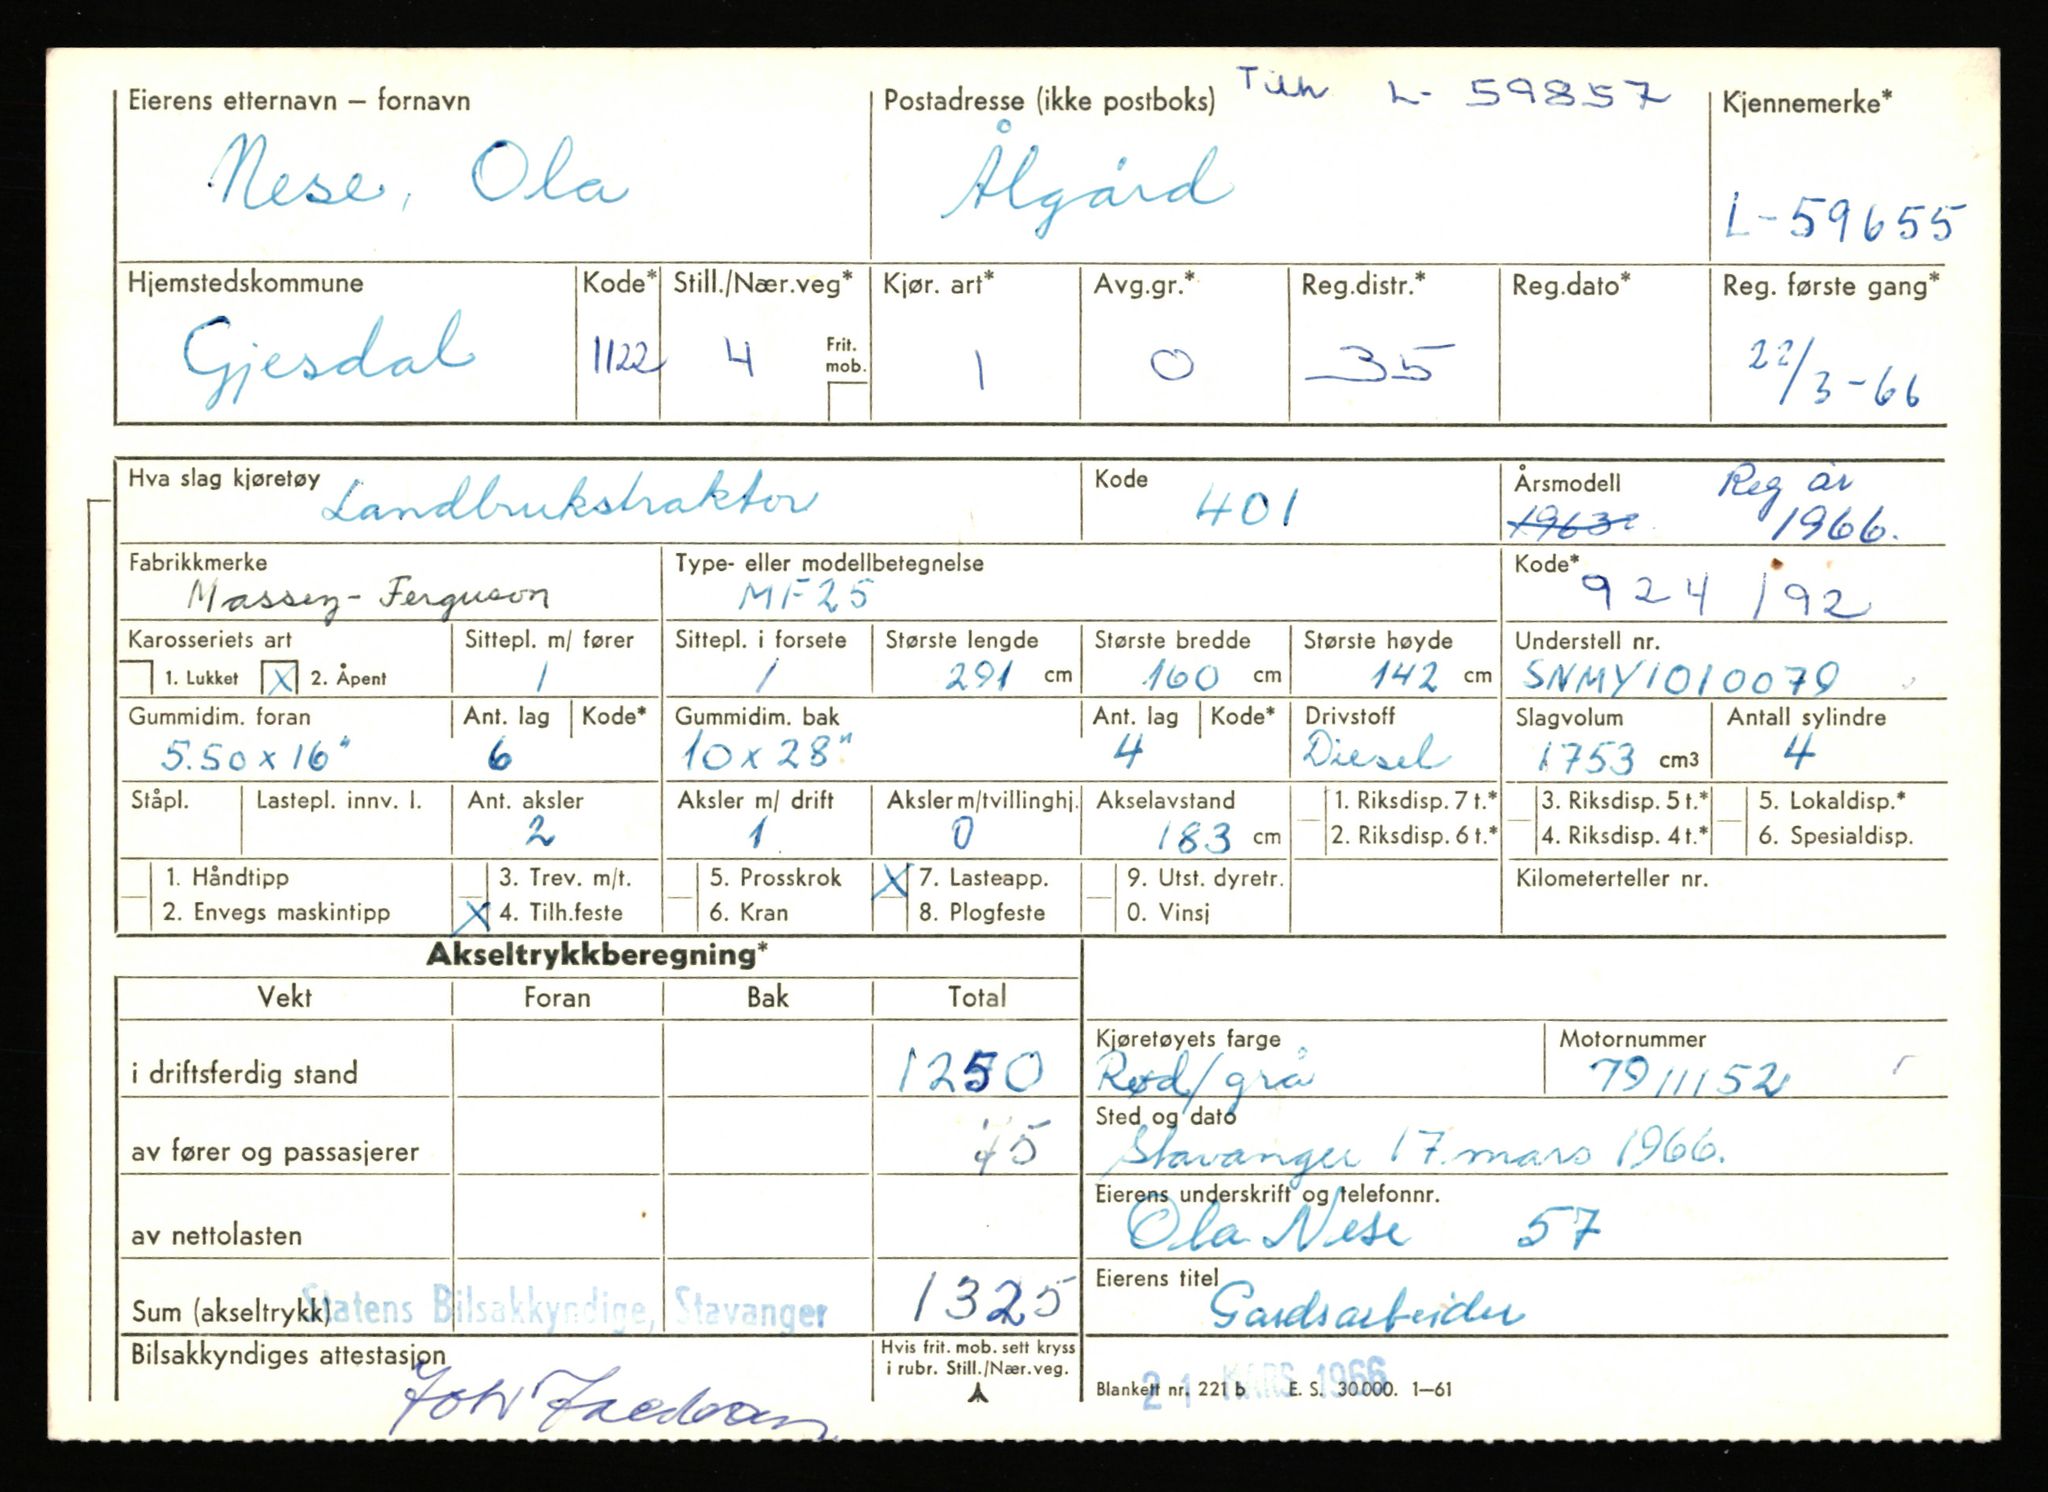 Eierens etternavn – fornavn Postadresse (ikke postboks) Tilh L- 59857 Kjennemerke*
Nese, Ola Ålgård L-59655
Hjemstedskommune Kode* Still./Nær.veg* Kjør. art* Avg.gr.* Reg.distr.* Reg.dato* Reg. første gang*
Gjesdal 1122 4 Frit. mob. 1 0 35 22/3-66
Hva slag kjøretøy Landbrukstraktor Kode 401 Årsmodell 1963 Reg år 1966.
Fabrikkmerke Type- eller modellbetegnelse Kode*
Massey-Ferguson MF25 924 192
Karosseriets art Sittepl. m/ fører Sittepl. i forsete Største lengde Største bredde Største høyde Understell nr.
1. Lukket X 2. Åpent 1 1 291 cm 160 cm 142 cm SNMY1010079
Gummidim. foran Ant. lag Kode* Gummidim. bak Ant. lag Kode* Drivstoff Slagvolum Antall sylindre
5.50 x 16" 6 10 x 28" 4 Diesel 1753 cm3 4
Ståpl. Lastepl. innv. l. Ant. aksler Aksler m/ drift Aksler m/tvillinghj. Akselavstand 1. Riksdisp. 7 t.* 3. Riksdisp. 5 t.* 5. Lokaldisp.*
2 1 0 183 cm 2. Riksdisp. 6 t.* 4. Riksdisp. 4 t.* 6. Spesialdisp.
1. Håndtipp 3. Trev. m/t. 5. Prosskrok X 7. Lasteapp. 9. Utst. dyretr. Kilometerteller nr.
2. Envegs maskintipp X 4. Tilh.feste 6. Kran 8. Plogfeste 0. Vinsj
Akseltrykkberegning*
Vekt Foran Bak Total
i driftsferdig stand 1250 Kjøretøyets farge Rød/grå Motornummer 79111152
av fører og passasjerer 75 Sted og dato Stavanger 17. mars 1966.
av nettolasten Eierens underskrift og telefonnr. Ola Nese 57
Sum (akseltrykk) Statens Bilsakkyndige, Stavanger 1325 Eierens titel Gardsarbeider
Bilsakkyndiges attestasjon Hvis frit. mob. sett kryss
i rubr. Still./Nær.veg.
Blankett nr. 221 b E. S. 30 000. 1–61
21 MARS 1966